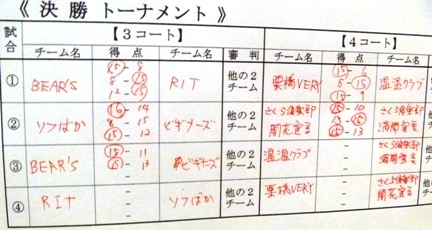 《 決 勝 トーナメント 》
試合 【3コート】 【4コート】
チーム名 得 点 チーム名 審 判 チーム名 得 点 チーム名
① BEAR'S 15 - 8 RIT 他の2チーム 栗橋VERY 15 - 6 温温クラブ
8 - 15 8 - 15
12 - 15 15 - 9
② ソフばか 16 - 14 ビギナーズ 他の2チーム さくら倶楽部 開花宣言 15 - 10 さくら倶楽部 満開宣言
8 - 15 13 - 15
15 - 12 15 - 13
③ BEAR'S 15 - 11 ビギナーズ 他の2チーム 温温クラブ - さくら倶楽部 満開宣言
15 - 13 -
- -
④ RIT - ソフばか 他の2チーム 栗橋VERY - さくら倶楽部 開花宣言
- -